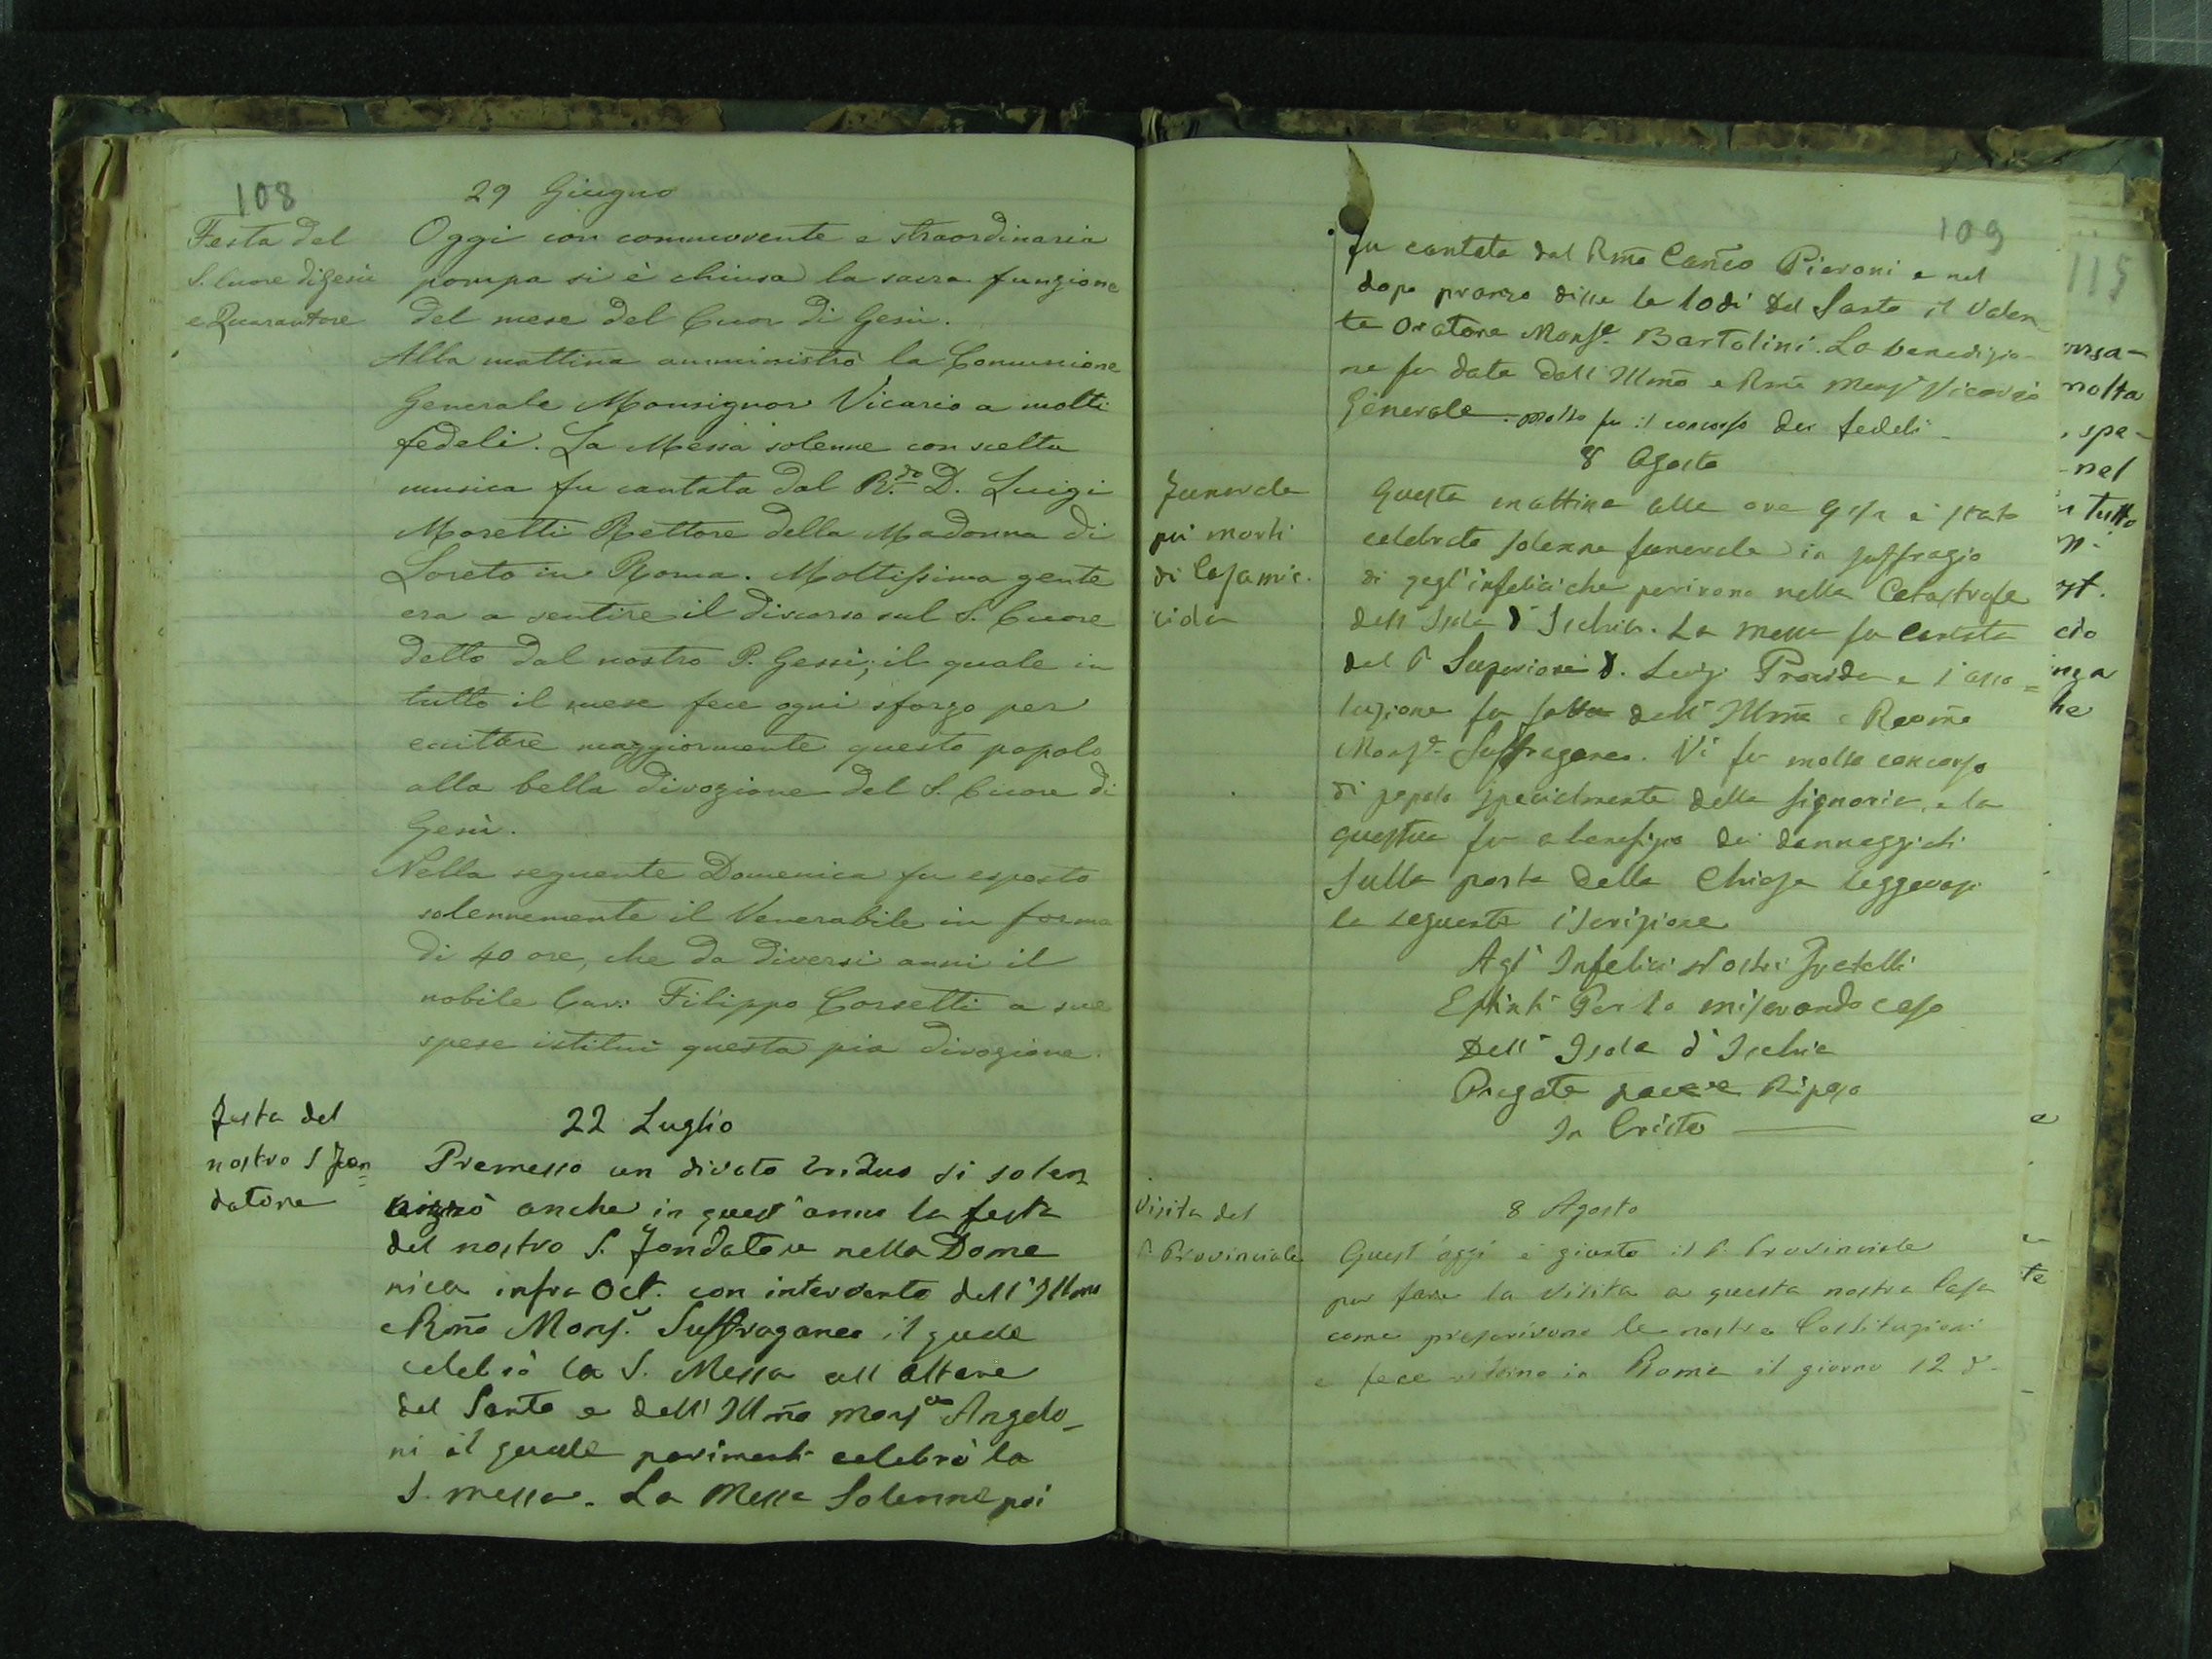 108
29 Giugno
Festa del
S. Cuore di Gesù
e Quarantore
Oggi con commovente e straordinaria
pompa si è chiusa la sacra funzione
del mese del Cuor di Gesù.
Alla mattina amministrò la Comunione
Generale Monsignor Vicario a molti
fedeli. La Messa solenne con scelta
musica fu cantata dal R.do D. Luigi
Moretti Rettore della Madonna di
Loreto in Roma. Moltissima gente
era a sentire il discorso sul S. Cuore
detto dal nostro P. Gessi, il quale in
tutto il mese fece ogni sforzo per
eccittare maggiormente questo popolo
alla bella divozione del S. Cuore di
Gesù.
Nella seguente Domenica fu esposto
solennemente il Venerabile in forma
di 40 ore, che da diversi anni il
nobile Cav: Filippo Corsetti a sue
spese istituì questa pia divozione.
festa del
nostro S Fon=
datore
22 Luglio
Premesso un divoto triduo si solen
nizzò anche in quest'anno la festa
del nostro S. Fondatore nella Dome
nica infra Oct. con intervento dell'Illmo
e Rmo Mons.r Suffraganeo il quale
celebrò la S. Messa all altare
del Santo e dell'Illmo Mons Angelo-
ni il quale parimenti celebrò la
S. messa. La Messa Solenne poi
109
fu cantata dal Rmo Canco Pieroni e nel
dopo pranzo disse le lodi del Santo il valen-
te Oratore Monsr. Bartolini. La benedizio-
ne fu data dall'Illmo e Rmo Monsr Vicario
Generale. Molto fu il concorso dei fedeli-
8 Agosto
Funerale
pei morti
di Casamic.
ciola
Questa mattina alle ore 9 1/2 è stato
celebrato solenne funerale in suffragio
di gegl'infelici che perirono nella Catastrofe
dell'Isola d'Ischia. La messa fu cantata
dal P Superiore D. Luigi Provida e l'asso=
luzione fu fatta dall'Illmo e Reomo
Monsr. Suffraganeo. Vi fu molto concorso
di popolo specialmente della signoria, e la
questua fu a benefizio dei danneggiati
Sulla porta della Chiesa leggevasi
la seguente iscrizione
Agl'Infelici Nostri Fratelli
Estinti Per lo miserando caso
Dell'Isola d'Ischia
Pregate pace e Riposo
In Cristo
8 Agosto
Visita del
P. Provinciale
Quest'oggi è giunto il P. Provinciale
per fare la visita a questa nostra Casa
come prescrivono le nostre Costituzioni
e fece ritorno in Roma il giorno 12 d-
115
molta
, spe-
nel
tutto
he
te